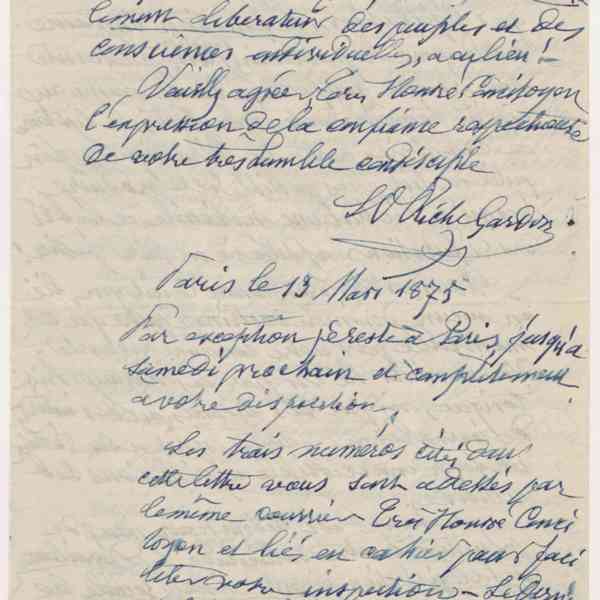 lement libérateur des peuples et des
consciences individuelles, au lieu!—
Veuillez agréer Très Honoré Concitoyen
l'expression de la confiance respectueuse
de votre très humble condisciple
L P Riche Gardon
Paris le 13 Mars 1875
Par exception je reste à Paris, jusqu'à
samedi prochain et complètement
à votre disposition.
Les trois numéros cités dans
cette lettre vous sont adressés par
le même courrier Très Honoré Conci
toyen et liés en cahier pour faci
liter votre inspection — Le